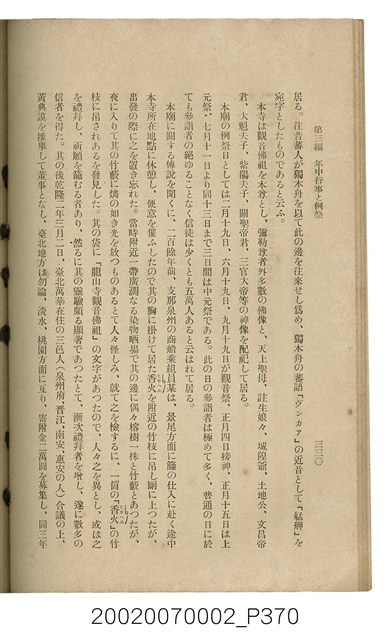 第三編　年中行事と例祭
三三〇
居る。往昔蕃人が獨木舟を以て此の邊を往來せし爲め、獨木舟の蕃語「ヴンカア」の近音として「艋舺」を
宛字としたものであると云ふ。
本寺は觀音佛祖を本尊とし、彌勒尊者外多數の佛像と、天上聖母、註生娘々、城隍爺、土地公、文昌帝
君、大魁夫子、紫陽夫子、關聖帝君、三官大帝等の神像を配祀して居る。
本廟の例祭日としては二月十九日、六月十九日、九月十九日が觀音祭、正月四日接神、正月十五日は上
元祭、七月十一日より同十三日まで三日間は中元祭である。此の日の參詣者は極めて多く、普通の日に於
ても參詣者の絶ゆることなく信徒は少くとも五萬人あると云はれて居る。
本廟に關する傳説を聞くに、二百餘年前、支那泉州の商船乘組員某は、景尾方面に籐の仕入に赴く途中
本寺所在地點に休憩し、便意を催ふしたので其の胸に掛けて居た香火を附近の竹枝に吊し厠に上つたが、
出發の際に之を置き忘れた。當時附近一帶廣濶なる染物晒場で其の邊に偶々榕樹一株と竹藪とあつたが、
夜に入りて其の竹藪に燐の如き光を放つものあるとて人々怪しみ、就て之を檢するに、一箇の「香火」の竹
枝に吊されあるを發見した。其の袋に、「龍山寺觀音佛祖」の文字があつたので、人々之を異とし、或は之
を禮拜し、祈願を籠むる者あり、然るに其の靈驗頗る顯著であつたとて、漸次禮拜者を増し、遂に數多の
信者を得た。其の後乾隆二年三月二日、臺北萬華在住の三邑人(泉州府、晋江、南安、惠安の人)合議の上、
黄典謨を推擧して董事となし、臺北地方は勿論、淡水、桃園方面に亙り、寄附金二萬圓を募集し、同三年
20020070002_P370